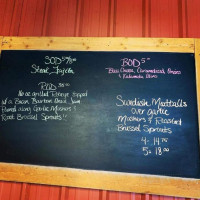 SOD $7.00
Steak Fajita
ROD
we've grilled Ribeye topped
w/ a Bacon Bourbon Onion Jam
served along Garlic Mashers &
Roast Brussel Sprouts!!
BOD 5-
Bleu Cheese, Caramelized Onions
& Kalamata Olives
Swedish Meatballs
over garlic
Mashers & Roasted
Brussel Sprouts
4- 14.75
5- 18.00